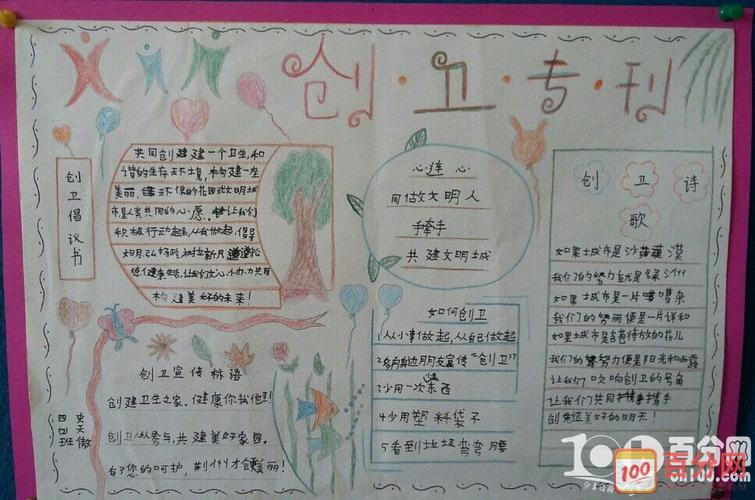 创·卫·专·刊
创卫倡议书
共同创建建一个卫生,和
谐的生存环境,构建一座
美丽,环保的花园式文明城
市是人类共同的心愿,让我们
积极行动起来,从我做起,倡导
构建美好的未来!
心连心
同做文明人
手牵手
共建文明城
创卫诗
歌
如果城市是沙漠
我们的努力就是绿洲
如果城市是一片嘈杂
我们的努力便是一片祥和
如果城市是含苞待放的花儿
我们的努力便是阳光和雨露
让我们吹响创卫的号角
让我们共同携手
创造美好的明天!
如何创卫
1从小事做起,从自己做起
2多向身边朋友宣传“创卫”
3少用一次性东西
4少用塑料袋子
5看到垃圾弯弯腰
创卫宣传标语
创建卫生之家,健康你我他
创卫人人参与,共建美好家园。
有了您的呵护,荆州才会美丽!
四四班
史天傲
百分网
100
百分网